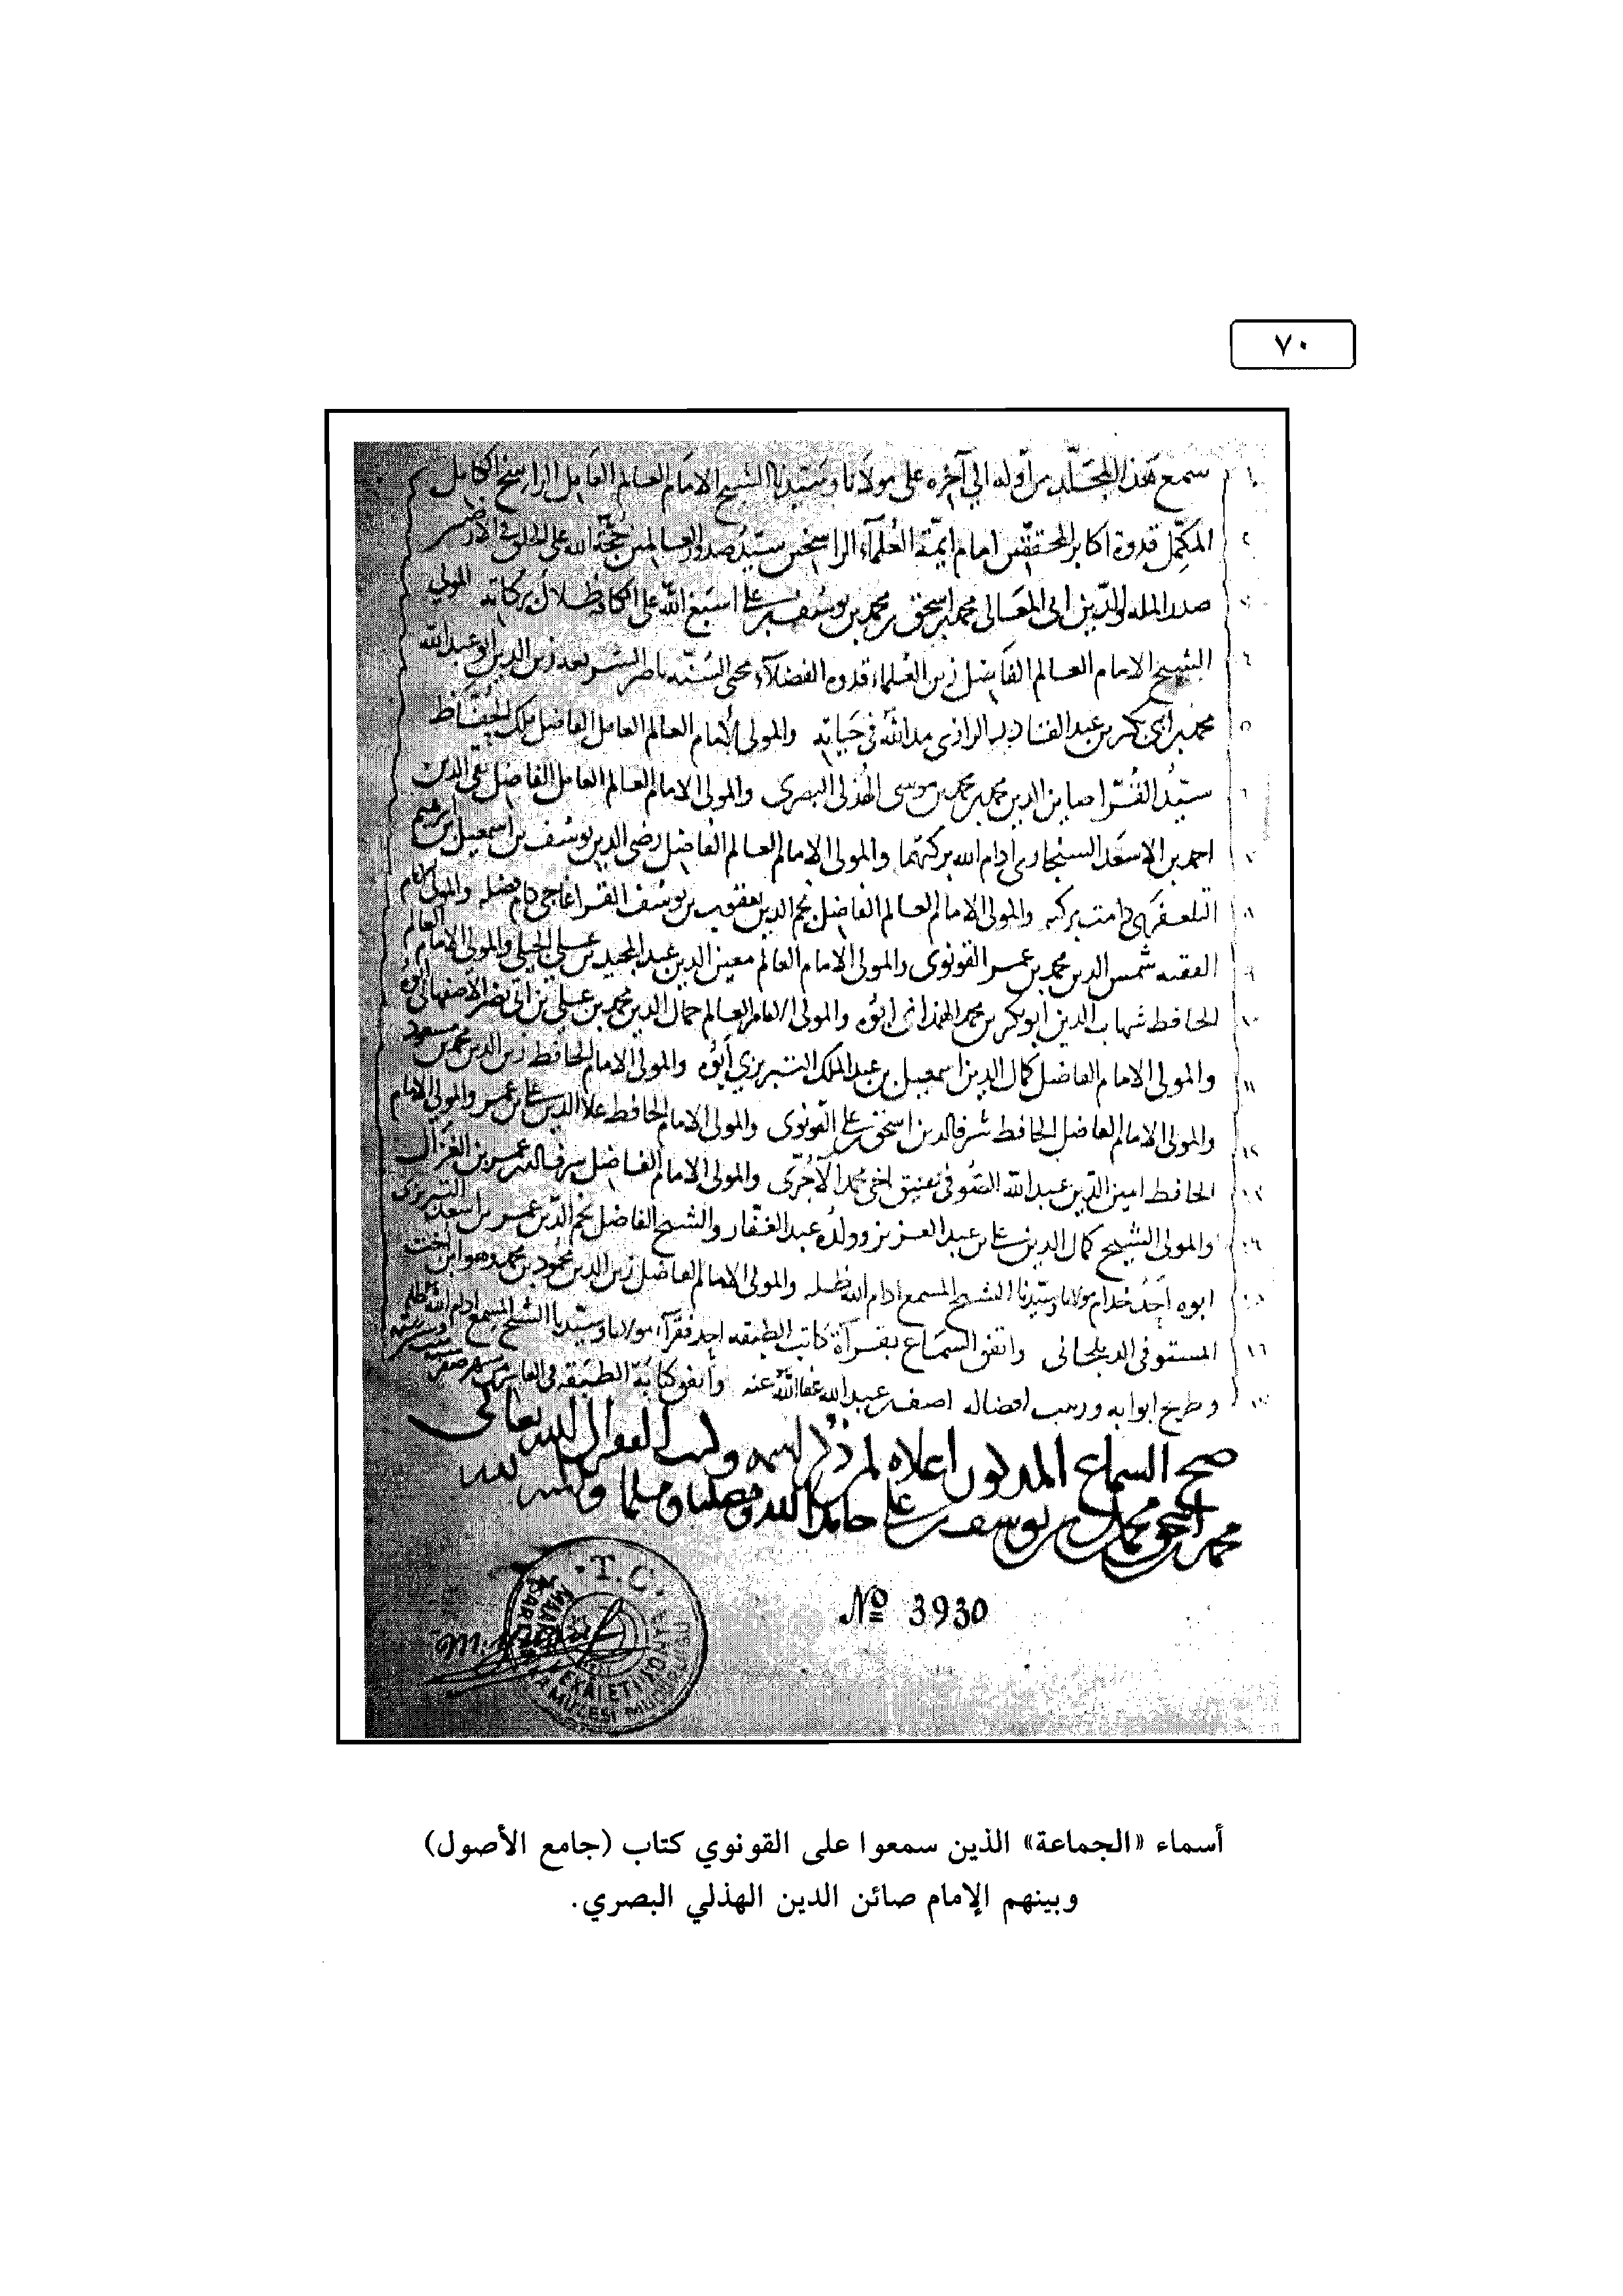 ٧٠
١ سمع هذا المجلد من أوله الى آخره على مولانا وسيدنا الشيخ الامام العالم العامل الراسخ الكامل
٢ المكمل قدوة اكابر المحققين امام ايمة العلماء الراسخين سيد صدور العالمين حجة الله على الخلق في الارضين
٣ صدر الملة والدين ابى المعالى محمد بن اسحق بن محمد بن يوسف بن على اسبغ الله على الكافة ظلال بركاته المولى
٤ الشيخ الامام العالم الفاضل زين العلماء قدوة الفضلاء محيى السنة ناصر الشريعة زين الدين ابو عبد الله
٥ محمد بن ابى بكر بن عبد القادر الرازى مد الله في حياته والمولى الامام العالم العامل الفاضل ملك الحفاظ
٦ سيد القرا صاين الدين محمد بن محمد بن موسى الهذلى البصرى والمولى الامام العالم العامل الفاضل تقى الدين
٧ احمد بن الاسعد السنجارى ادام الله بركتهما والمولى الامام العالم الفاضل رضى الدين يوسف بن اسمعيل بن ابرهيم
٨ التلعفرى دامت بركته والمولى الامام العالم الفاضل نجم الدين يعقوب بن يوسف القراغاجى دام فضله والمولى الامام العالم
٩ الفقيه شمس الدين محمد بن عمر القونوى والمولى الامام العالم معين الدين عبد المجيد بن على الجيلى والمولى الامام
١٠ الحافظ شهاب الدين ابو بكر بن محمد الهمذانى ابوه والمولى الامام العالم جمال الدين محمد بن على بن ابى نصر الاصفهانى ابوه
١١ والمولى الامام الفاضل كمال الدين اسمعيل بن عبد الملك التبريزي ابوه والمولى الامام الحافظ زين الدين محمد بن مسعود
١٢ والمولى الامام الفاضل الحافظ شرف الدين اسحق بن على القونوى والمولى الامام الحافظ علا الدين على بن عمر والمولى الامام
١٣ الحافظ امين الدين عبد الله الصوفى عتيق اخى محمد الآجرى والمولى الامام الفاضل شرف الدين عمر بن الغزال
١٤ والمولى الشيخ كمال الدين على بن عبد العزيز وولده عبد الغفار والشيخ الفاضل نجم الدين عمر بن اسعد التبريزى
١٥ ابوه احد خدام مولانا وسيدنا الشيخ المسمع ادام الله ظله والمولى الامام الفاضل زين الدين محمود بن محمد وهو ابن اخت
١٦ المستوفى واتفق السماع بقراءة كاتب الطبقة احد فقراء مولانا وسيدنا الشيخ المسمع ادام الله ظله
١٧ وطريح ابوابه افضاله اصف بن عبد الله عفا الله عنه واتفق كتابة الطبقة فى العاشر من شهر صفر
صح السماع المذكور اعلاه لمن ذكر اسمه وكتب الفقير الى الله تعالى
محمد بن اسحق بن محمد بن يوسف بن على حامدا لله ومصليا ومسلما
T. C.
№ 3930
أسماء «الجماعة» الذين سمعوا على القونوي كتاب (جامع الأصول)
وبينهم الإمام صائن الدين الهذلي البصري.